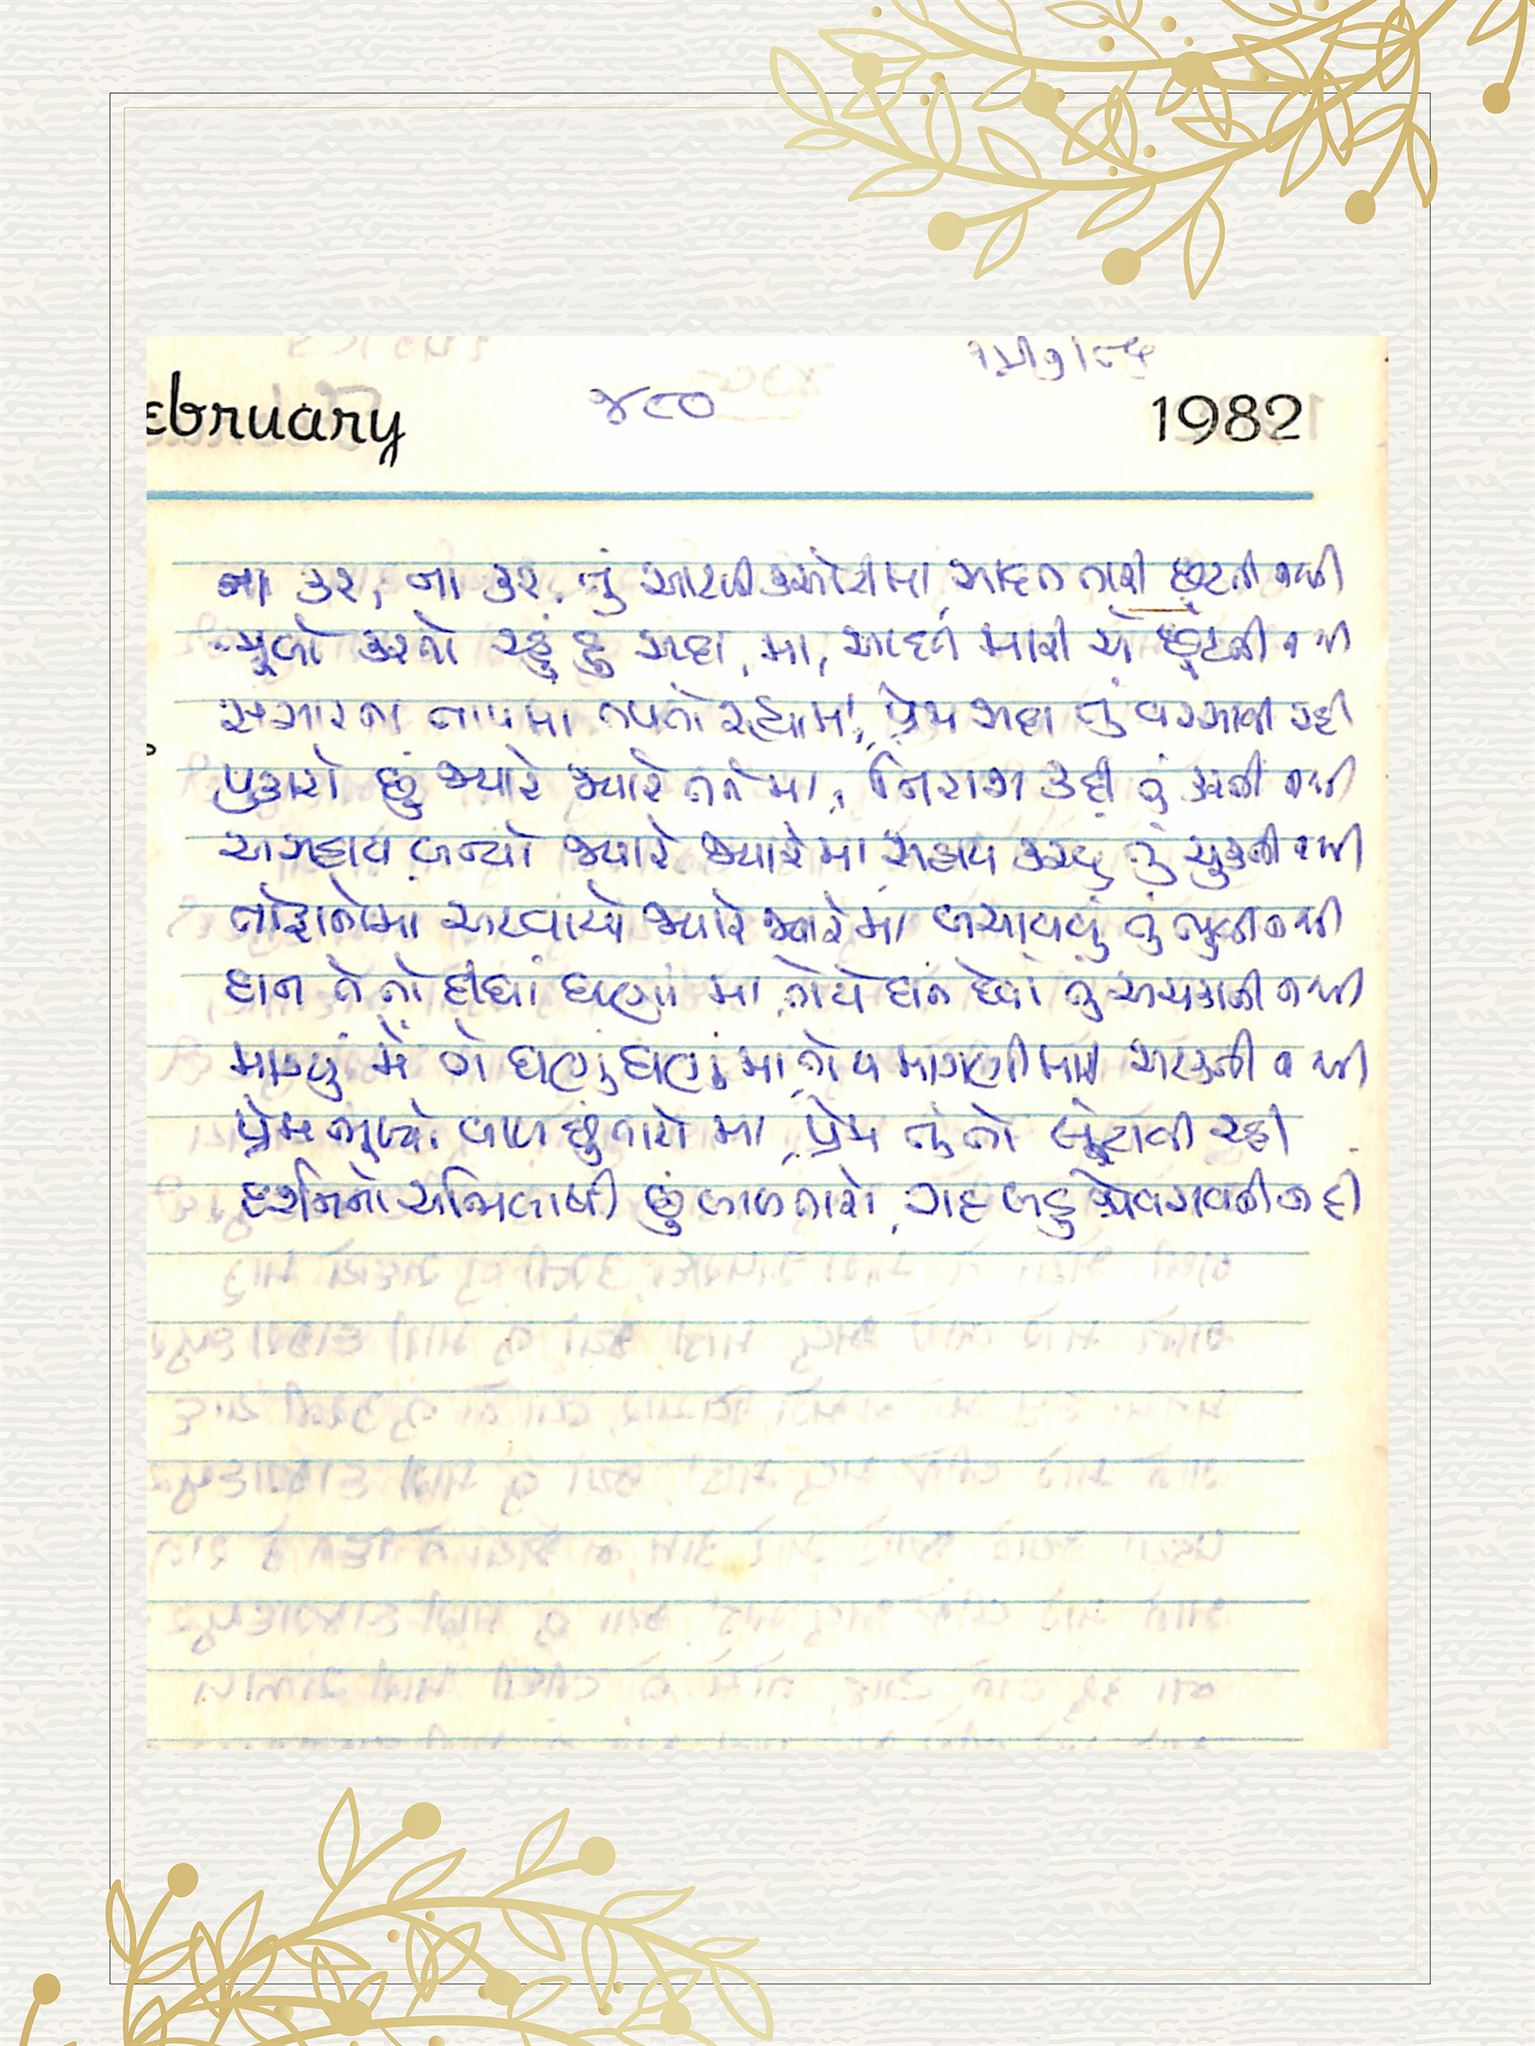 ૨૫।૭।૮૬
ebruary ૪૮૦ 1982
ના કર, ના કર, તું આટલી કસોટી મા, આદત તારી છૂટતી નથી
ભૂલો કરતો રહું છું સદા, મા, આદત મારી એ છૂટતી નથી
સંસારના તાપમા તપતો રહ્યો મા, પ્રેમ સદા તું વરસાવી રહી
પુકારો છું જ્યારે જ્યારે તને મા, નિરાશ કદી તું કરતી નથી
અસહાય બન્યો જ્યારે જ્યારે મા સહાય કરવુ તું ચુકતી નથી
તોફાનોમા અટવાયો જ્યારે જ્યારે મા બચાવવું તું ભુલતી નથી
દાન તે તો દીધાં ઘણાં મા, તોયે દાન દેતાં તું અચકાતી નથી
માગ્યું મેં તો ઘણું ઘણું મા, તોય માગણી મારી અટકતી નથી
પ્રેમ ભૂખ્યો બાળ છું તારો મા, પ્રેમ તું તો લૂંટાવી રહી
દર્શનનો અભિલાષી છું બાળ તારો,